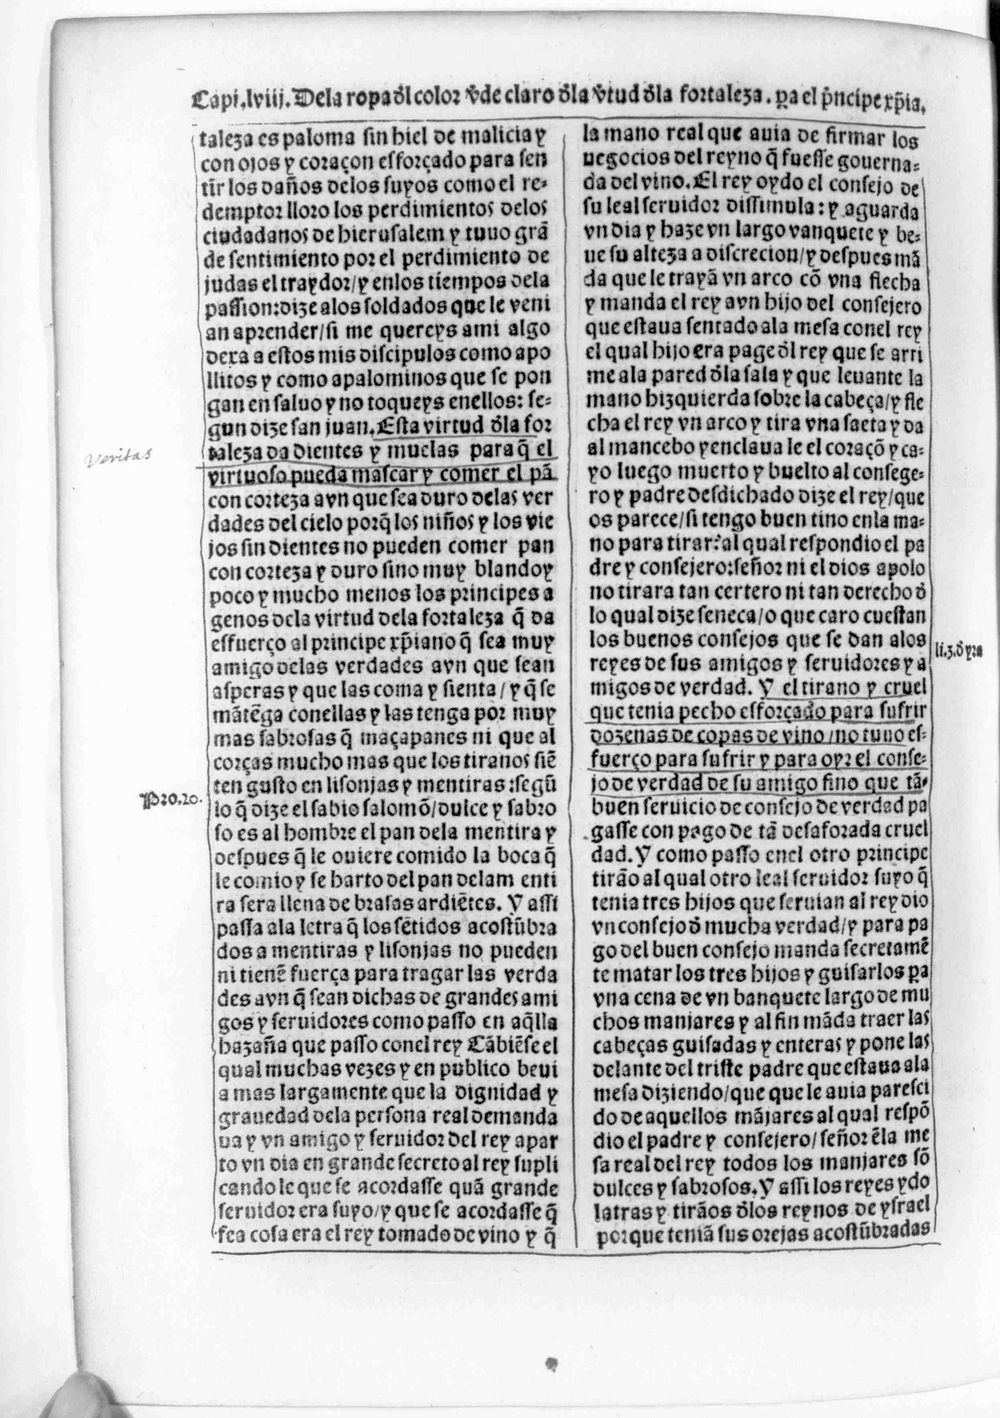 Capi.lviij. De la ropa d̄l color v̄de claro d̄la v̄tud d̄la fortaleza. ꝑa el p̄ncipe xp̄ia.
taleza es paloma sin hiel de malicia y
con ojos y coraçon esforçado para sen
tir los daños delos suyos como el re-
demptor lloro los perdimientos delos
ciudadanos de hierusalem y tuuo grã
de sentimiento por el perdimiento de
judas el traydor/y enlos tiempos dela
passion:dize alos soldados que le veni
an aprender/si me quereys ami algo
dexa a estos mis discipulos como apo
llitos y como apalominos que se pon
gan en saluo y no toqueys enellos: se-
gun dize san juan. Esta virtud d̄la for
taleza da dientes y muelas para q̄ el
veritas
virtuoso pueda mascar y comer el pã
con corteza avn que sea duro delas ver
dades del cielo porq̄ los niños y los vie
jos sin dientes no pueden comer pan
con corteza y duro sino muy blando y
poco y mucho menos los principes a
genos dela virtud dela fortaleza q̄ da
esfuerço al principe xp̄iano q̄ sea muy
amigo delas verdades avn que sean
asperas y que las coma y sienta/y q̄ se
mãtẽga conellas y las tenga por muy
mas sabrosas q̄ maçapanes ni que al
corças mucho mas que los tiranos siẽ
ten gusto en lisonjas y mentiras:segũ
Pro.20.
lo q̄ dize el sabio salomõ/dulce y sabro
so es al hombre el pan dela mentira y
despues q̄ le ouiere comido la boca q̄
le comio y se harto del pan delam enti
ra sera llena de brasas ardiẽtes. Y assi
passa ala letra q̄ los sẽtidos acostũbra
dos a mentiras y lisonjas no pueden
ni tienẽ fuerça para tragar las verda
des avn q̄ sean dichas de grandes ami
gos y seruidores como passo en aq̄lla
hazaña que passo conel rey Cãbiẽse el
qual muchas vezes y en publico beui
a mas largamente que la dignidad y
grauedad dela persona real demanda
ua y vn amigo y seruidor del rey apar
to vn dia en grande secreto al rey supli
cando le que se acordasse quã grande
seruidor era suyo/y que se acordasse q̄
fea cosa era el rey tomado de vino y q̄
la mano real que auia de firmar los
negocios del reyno q̄ fuesse gouerna-
da del vino. El rey oydo el consejo de
su leal seruidor dissimula: y aguarda
vn dia y haze vn largo vanquete y be-
ue su alteza a discrecion/y despues mã
da que le trayã vn arco cõ vna flecha
y manda el rey avn hijo del consejero
que estaua sentado ala mesa conel rey
el qual hijo era page d̄l rey que se arri
me ala pared d̄la sala y que leuante la
mano hizquierda sobre la cabeça/y fle
cha el rey vn arco y tira vna saeta y da
al mancebo y enclaua le el coraçõ y ca-
yo luego muerto y buelto al consege-
ro y padre desdichado dize el rey/que
os parece/si tengo buen tino enla ma-
no para tirar:al qual respondio el pa
dre y consejero:señor ni el dios apolo
no tirara tan certero ni tan derecho d̄
lo qual dize seneca/o que caro cuestan
los buenos consejos que se dan alos
li.3.d̄ yra
reyes de sus amigos y seruidores y a
migos de verdad. Y el tirano y cruel
que tenia pecho esforçado para sufrir
dozenas de copas de vino/no tuuo es-
fuerço para sufrir y para oyr el conse-
jo de verdad de su amigo fino que tã
buen seruicio de consejo de verdad pa
gasse con pago de tã desaforada cruel
dad. Y como passo enel otro principe
tirão al qual otro leal seruidor suyo q̄
tenia tres hijos que seruian al rey dio
vn consejo d̄ mucha verdad/y para pa
go del buen consejo manda secretamẽ
te matar los tres hijos y guisarlos ꝑa
vna cena de vn banquete largo de mu
chos manjares y al fin mãda traer las
cabeças guisadas y enteras y pone las
delante del triste padre que estaua ala
mesa diziendo/que que le auia paresci
do de aquellos mãjares al qual respõ
dio el padre y consejero/señor ẽla me
sa real del rey todos los manjares sõ
dulces y sabrosos. Y assi los reyes ydo
latras y tirãos d̄los reynos de ysrael
porque teniã sus orejas acostũbradas